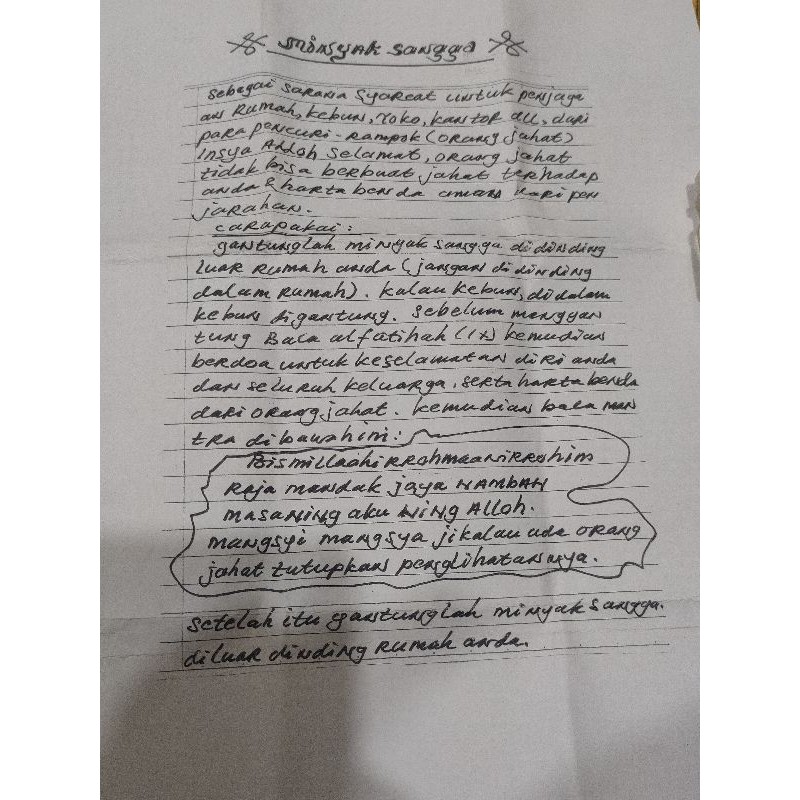 Minyak Sangga
Sebagai sarana syareat untuk penjaga
an rumah, kebun, toko, kantor dll, dari
para pencuri-rampok (orang jahat)
insya Alloh selamat, orang jahat
tidak bisa berbuat jahat terhadap
anda & harta benda aman dari pen
jarahan.
carapakai:
gantunglah minyak sangga di dinding
luar rumah anda (jangan di dinding
dalam rumah). kalau kebun, di dalam
kebun digantung. sebelum menggan
tung Baca alfatihah (1x) kemudian
berdoa untuk keselamatan diri anda
dan seluruh keluarga, serta harta benda
dari orang jahat. kemudian baca man
tra dibawahini:
BismillaahiRRohmaaniRRohim
Raja mandak jaya NAMBAH
masaNing aku Ning Alloh.
mangsyi mangsya jikalau ada orang
jahat tutupkan penglihatannya.
setelah itu gantunglah minyak sangga.
diluar dinding rumah anda.